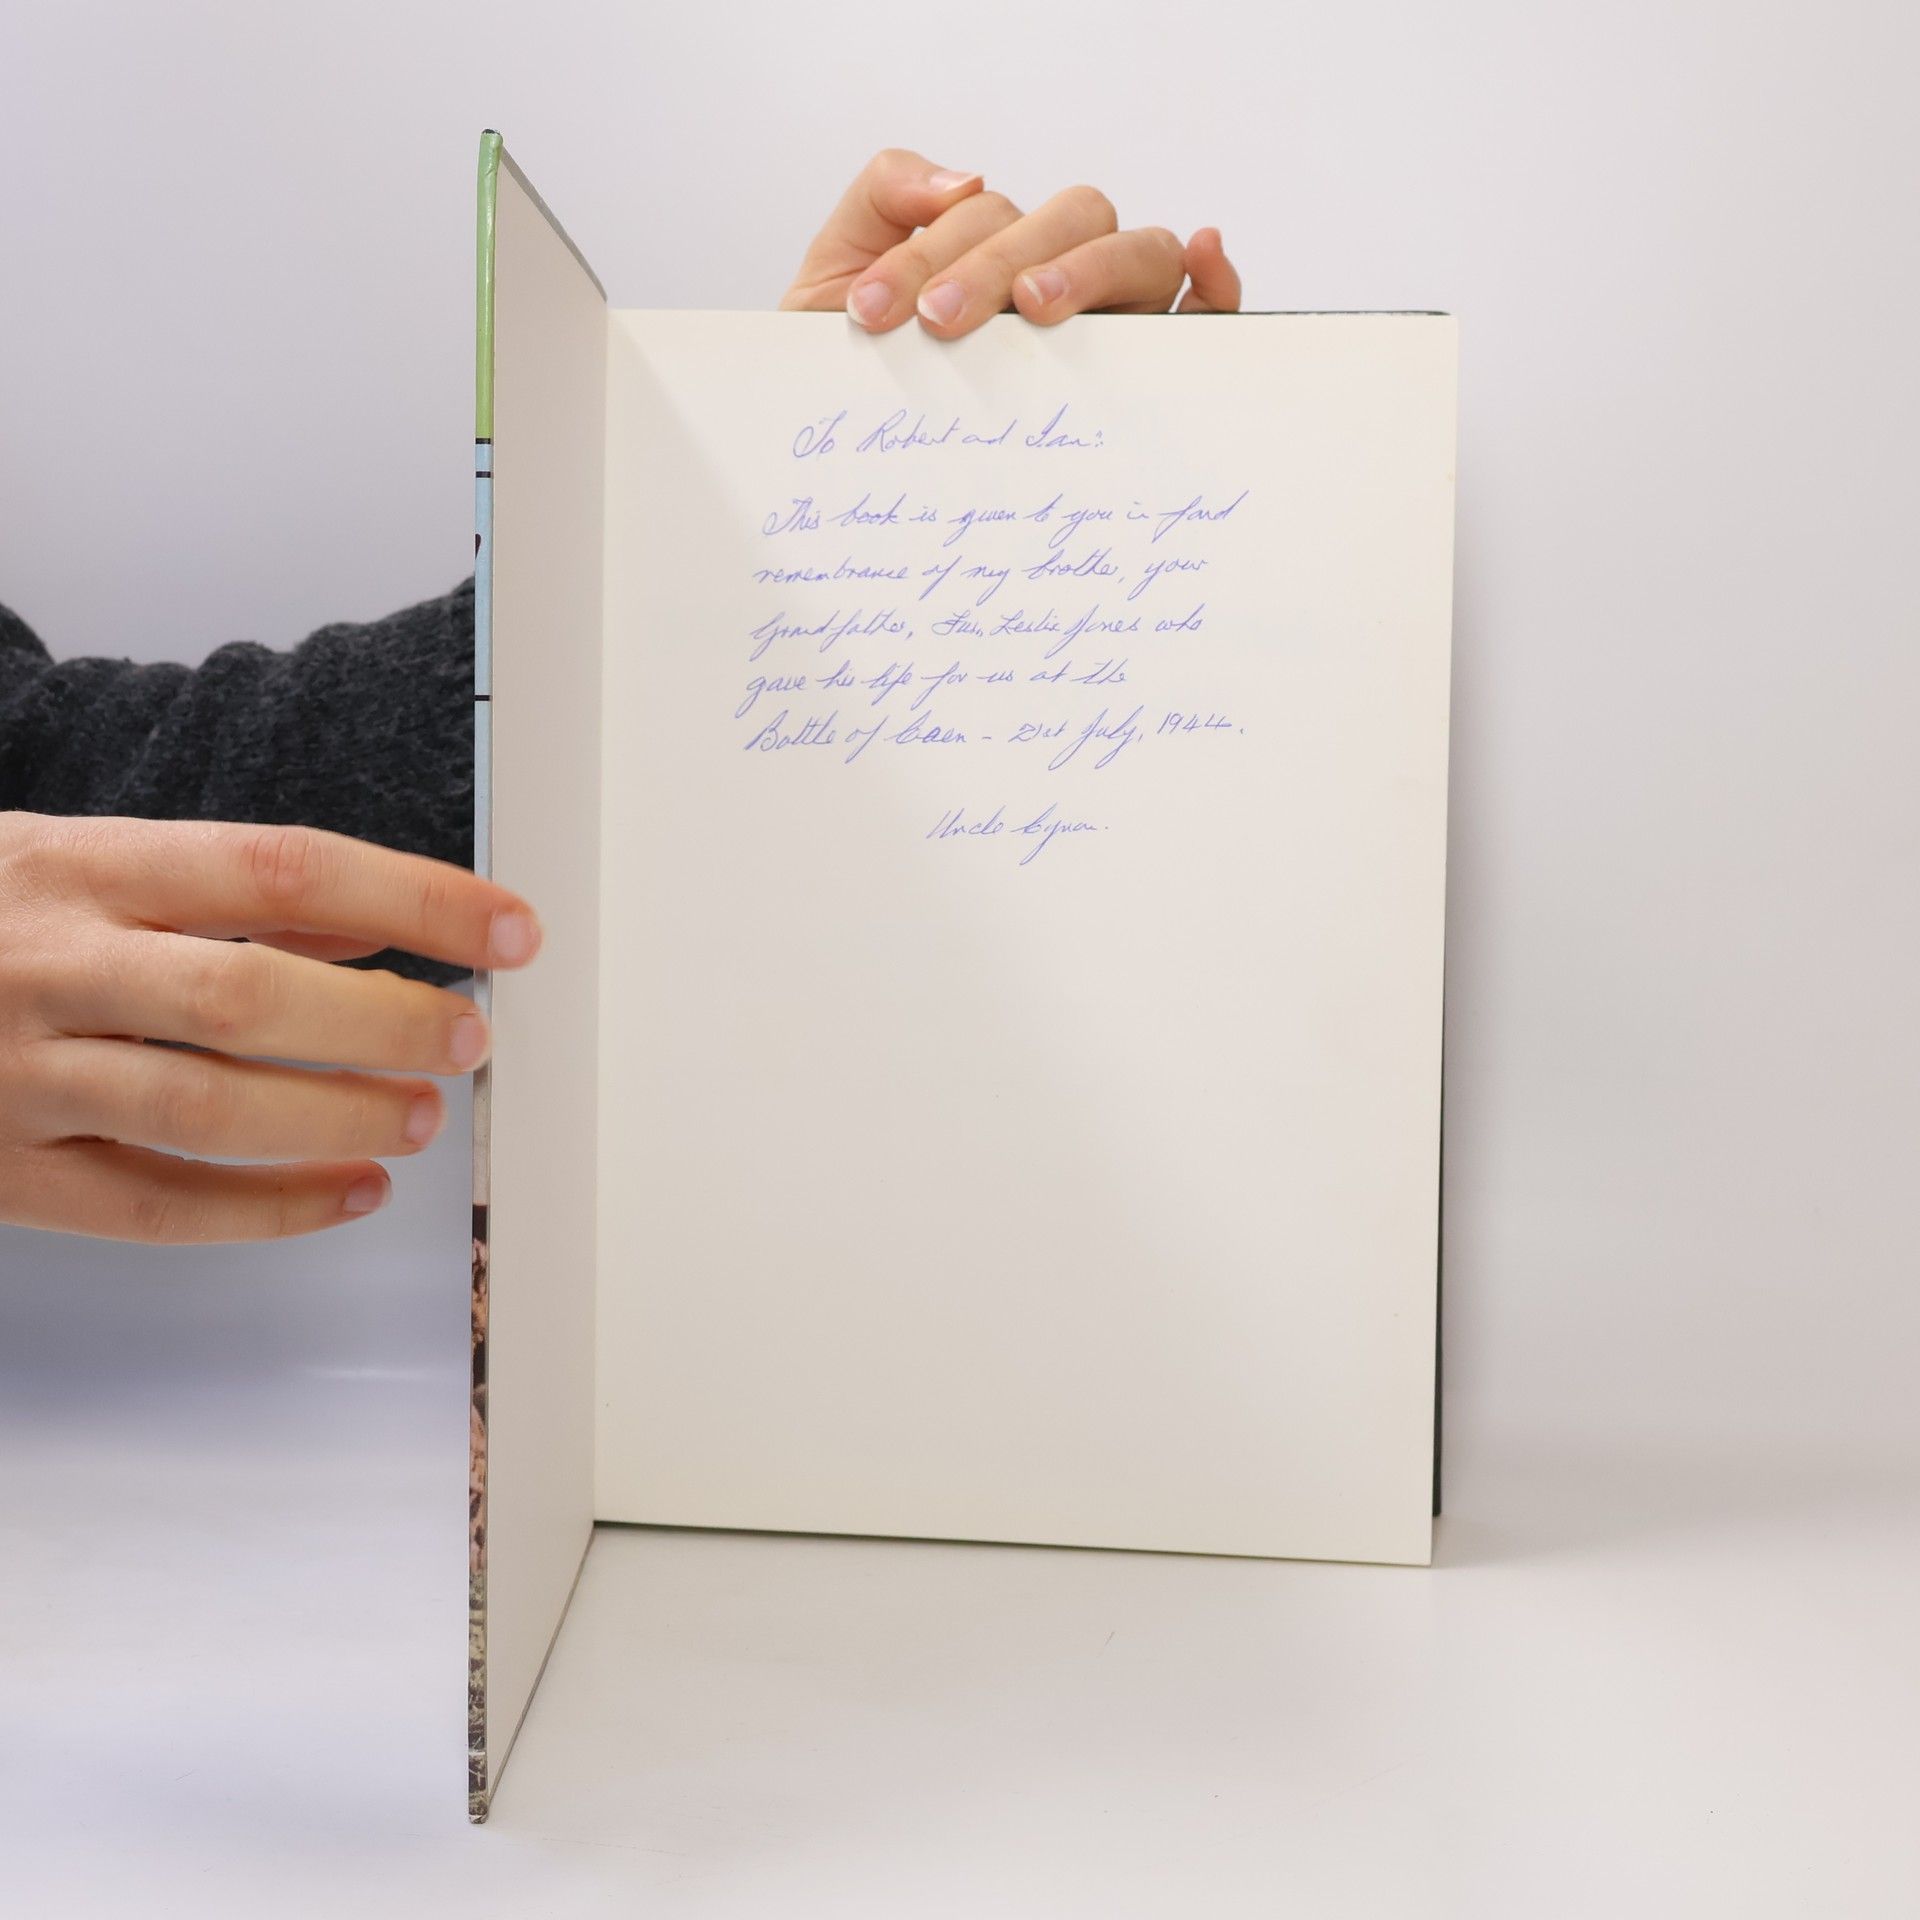 To Robert and Ian:
This book is given to you in fond
remembrance of my brother, your
Grandfather, Fus. Leslie Jones who
gave his life for us at the
Battle of Caen - 21st July, 1944.
Uncle Cynon.